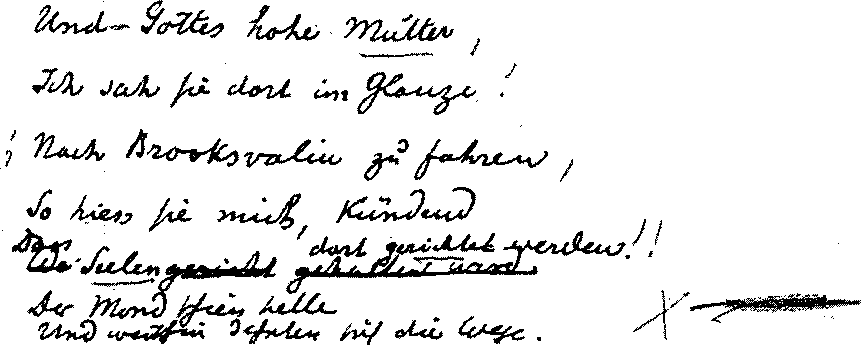 Und – Gottes hohe Mutter,
Ich sah sie dort im Glanze!
Nach Brooksvalin zu fahren,
So hiess sie mich, Kündend
Dass Seelen dort gerichtet werden!!
Der Mond schien helle
Und weithin dehnten sich die Wege.